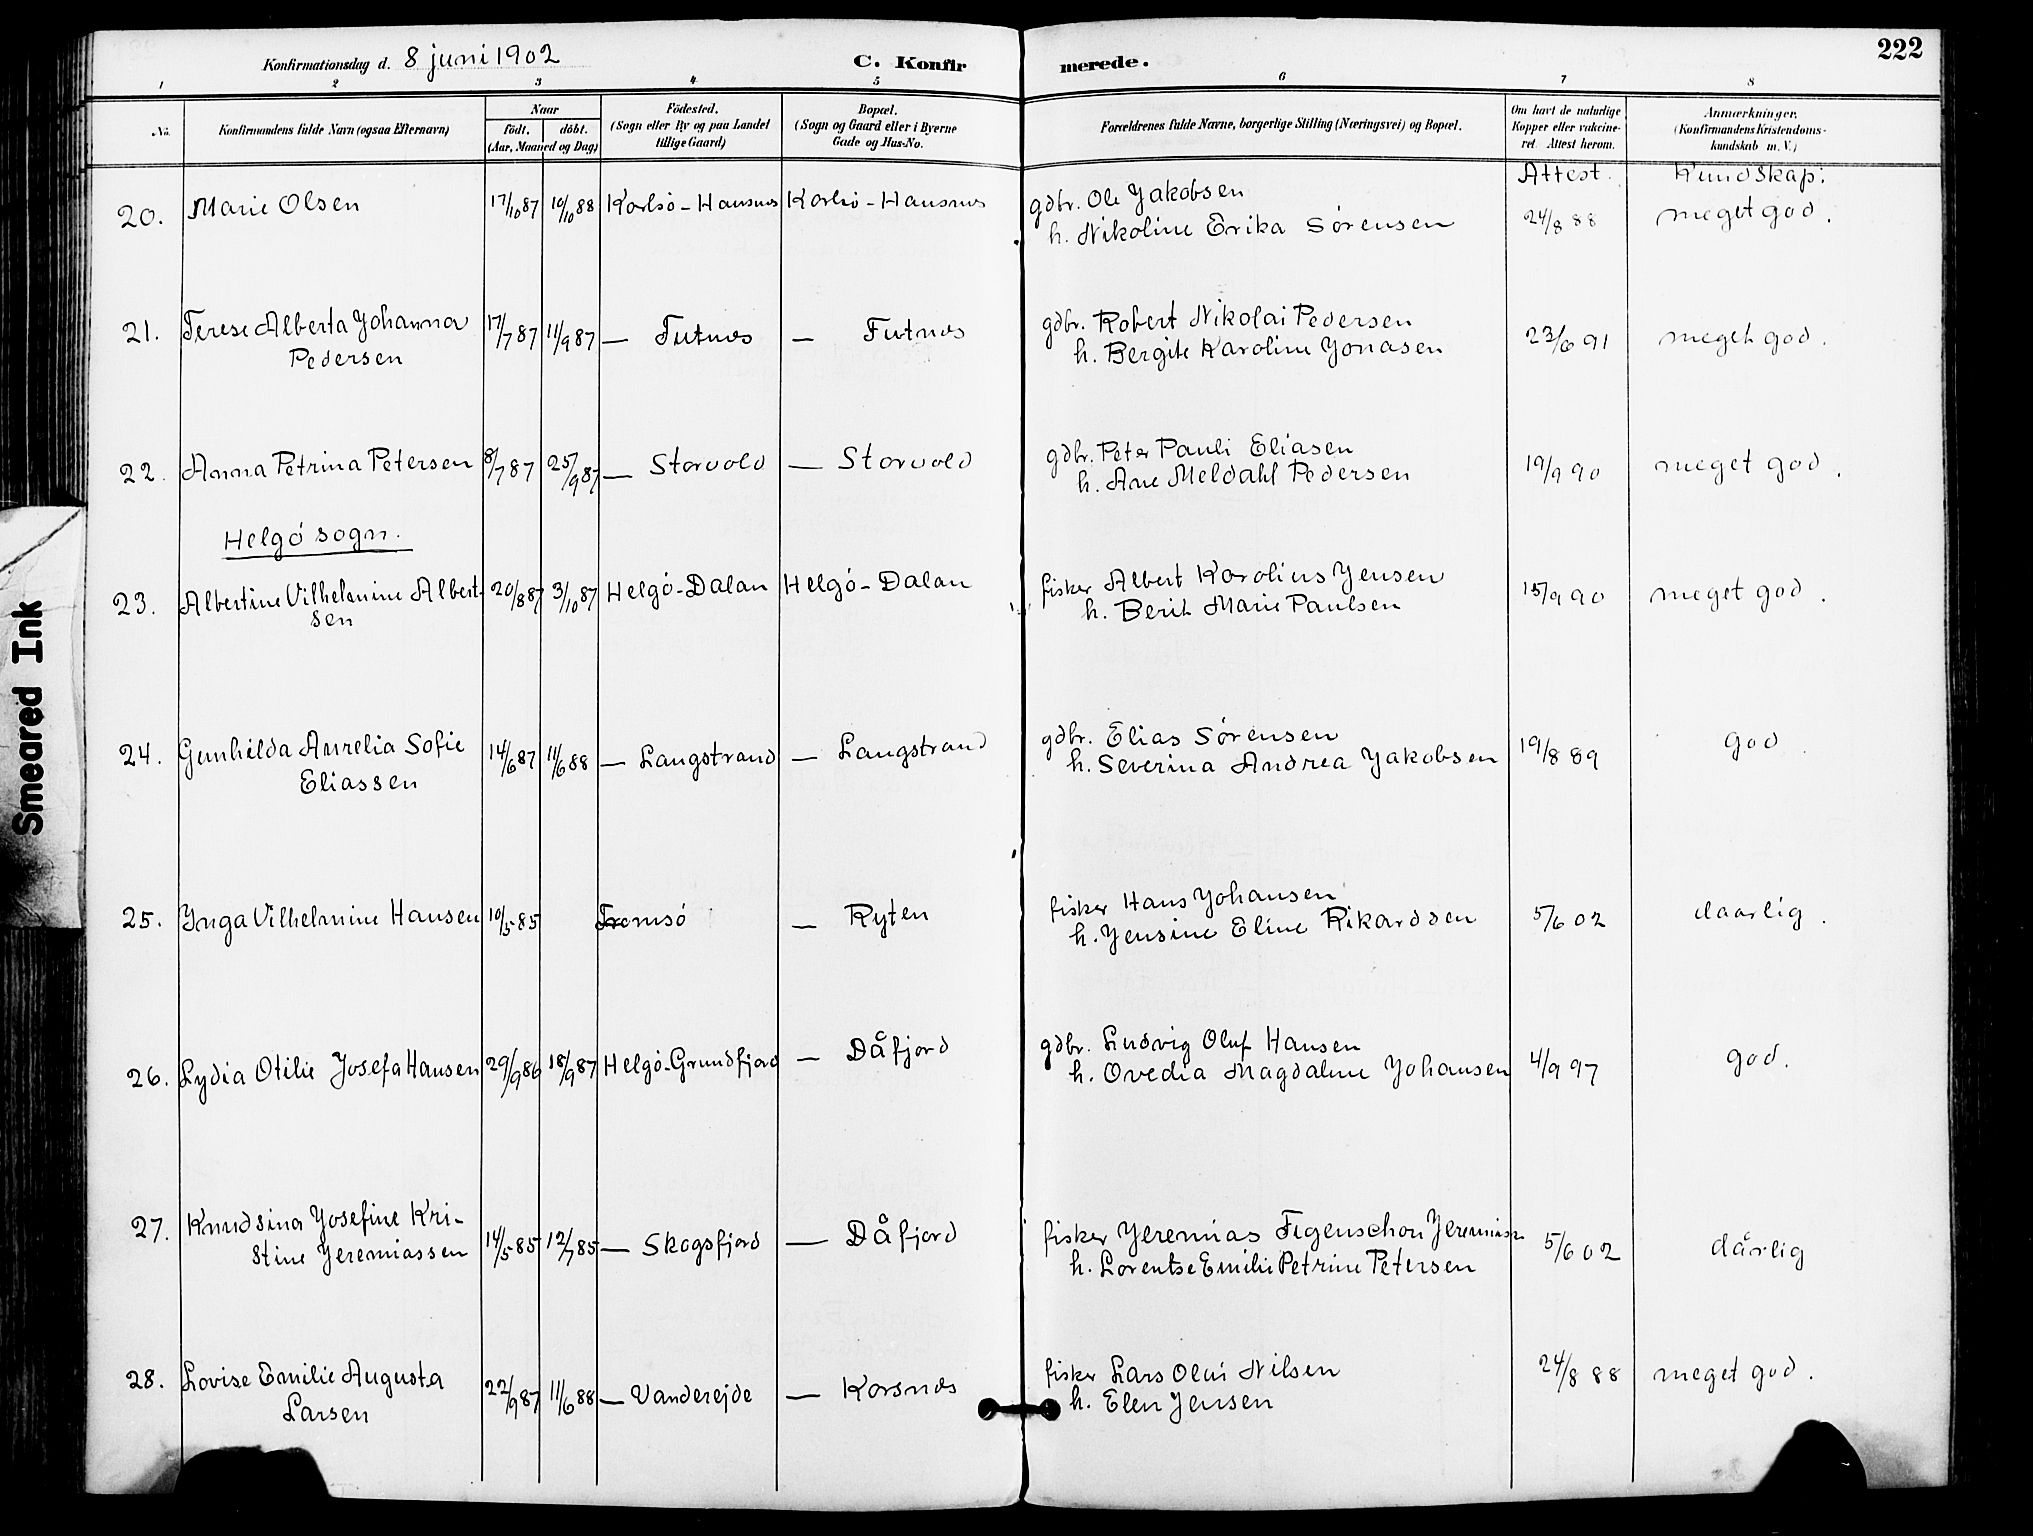 222
Konfirmationsdag d. 8 juni 1902
C. Konfirmerede.
1 2 3 4 5 6 7 8
No.
Konfirmandens fulde Navn (ogsaa Efternavn)
Naar
födt. döbt.
(Aar, Maaned og Dag)
Födested.
(Sogn eller By og paa Landet
tillige Gaard)
Bopæl.
(Sogn og Gaard eller i Byerne
Gade og Hus-No.
Forældrenes fulde Navne, borgerlige Stilling (Næringsvei) og Bopæl.
Om havt de naturlige
Kopper eller vakcine-
ret. Attest herom.
Anmærkninger.
(Konfirmandens Kristendoms-
kundskab m. V.)
Attest. Kundskap:
20. Marie Olsen 17/10 87 10/10 88 Karlsö - Hansnes Karlsö - Hansnes gdbr. Ole Jakobsen 24/8 88 meget god.
h. Nikoline Erika Sørensen
21. Terese Alberta Johanna 17/7 87 11/9 87 — Futnes — Futnes gdbr. Robert Nikolai Pedersen 23/6 91 meget god.
Pedersen h. Bergite Karoline Jonasen
22. Anna Petrina Petersen 8/7 87 25/9 87 — Storvold — Storvold gdbr. Peter Pauli Eliasen 19/9 90 meget god.
h. Ane Meldahl Pedersen
Helgö sogn.
23. Albertine Vilhelmine Albert- 20/8 87 3/10 87 Helgö - Dalan Helgö - Dalan fisker Albert Karolius Jensen 15/9 90 meget god.
sen h. Berit Marie Paulsen
24. Gunhilda Aurelia Sofie 14/6 87 11/6 88 — Langstrand — Langstrand gdbr. Elias Sørensen 19/8 89 god.
Eliassen h. Severina Andrea Jakobsen
25. Inga Vilhelmine Hansen 10/5 85 Tromsö — Ryten fisker Hans Johansen 5/6 02 daarlig.
h. Jensine Eline Rikardsen
26. Lydia Otilie Josefa Hansen 29/9 86 18/9 87 Helgö - Grundfjord — Dåfjord gdbr. Ludvig Oluf Hansen 4/9 97 god.
h. Ovedia Magdalene Johansen
27. Knudsina Josefine Kri- 14/5 85 12/7 85 — Skogsfjord — Dåfjord fisker Jeremias Figenschou 5/6 02 dårlig
stine Jeremiassen h. Lorentse Emilie Petrine Petersen
28. Lovise Emilie Augusta 22/9 87 11/6 88 — Vanderejde — Korsnes fisker Lars Olai Nilsen 24/8 88 meget god.
Larsen h. Elen Jensen
Smeared Ink